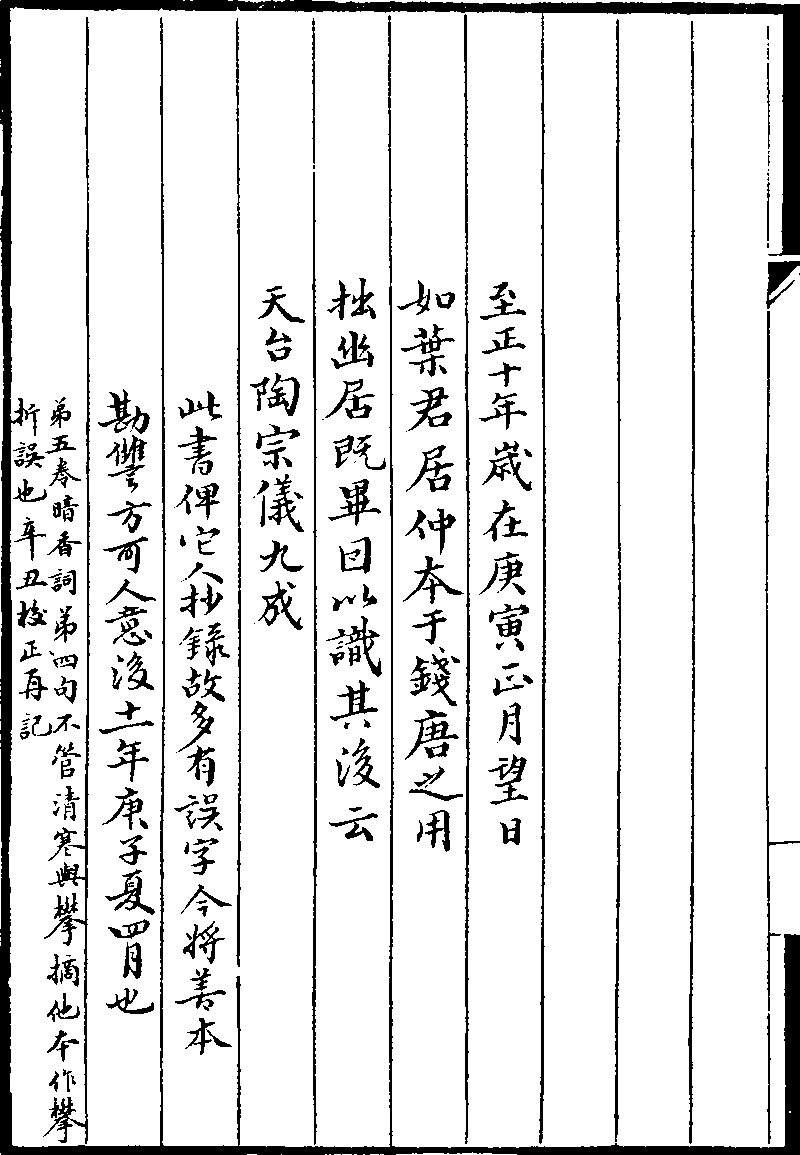 至正十年歲在庚寅正月望日
如葉君居仲本于錢唐之用
拙幽居既畢因以識其後云
天台陶宗儀九成
此書俾它人抄錄故多有誤字今將善本
勘讐方可人意後十一年庚子夏四月也
弟五卷暗香詞弟四句不管清寒與攀摘他本作攀
折誤也辛丑校正再記